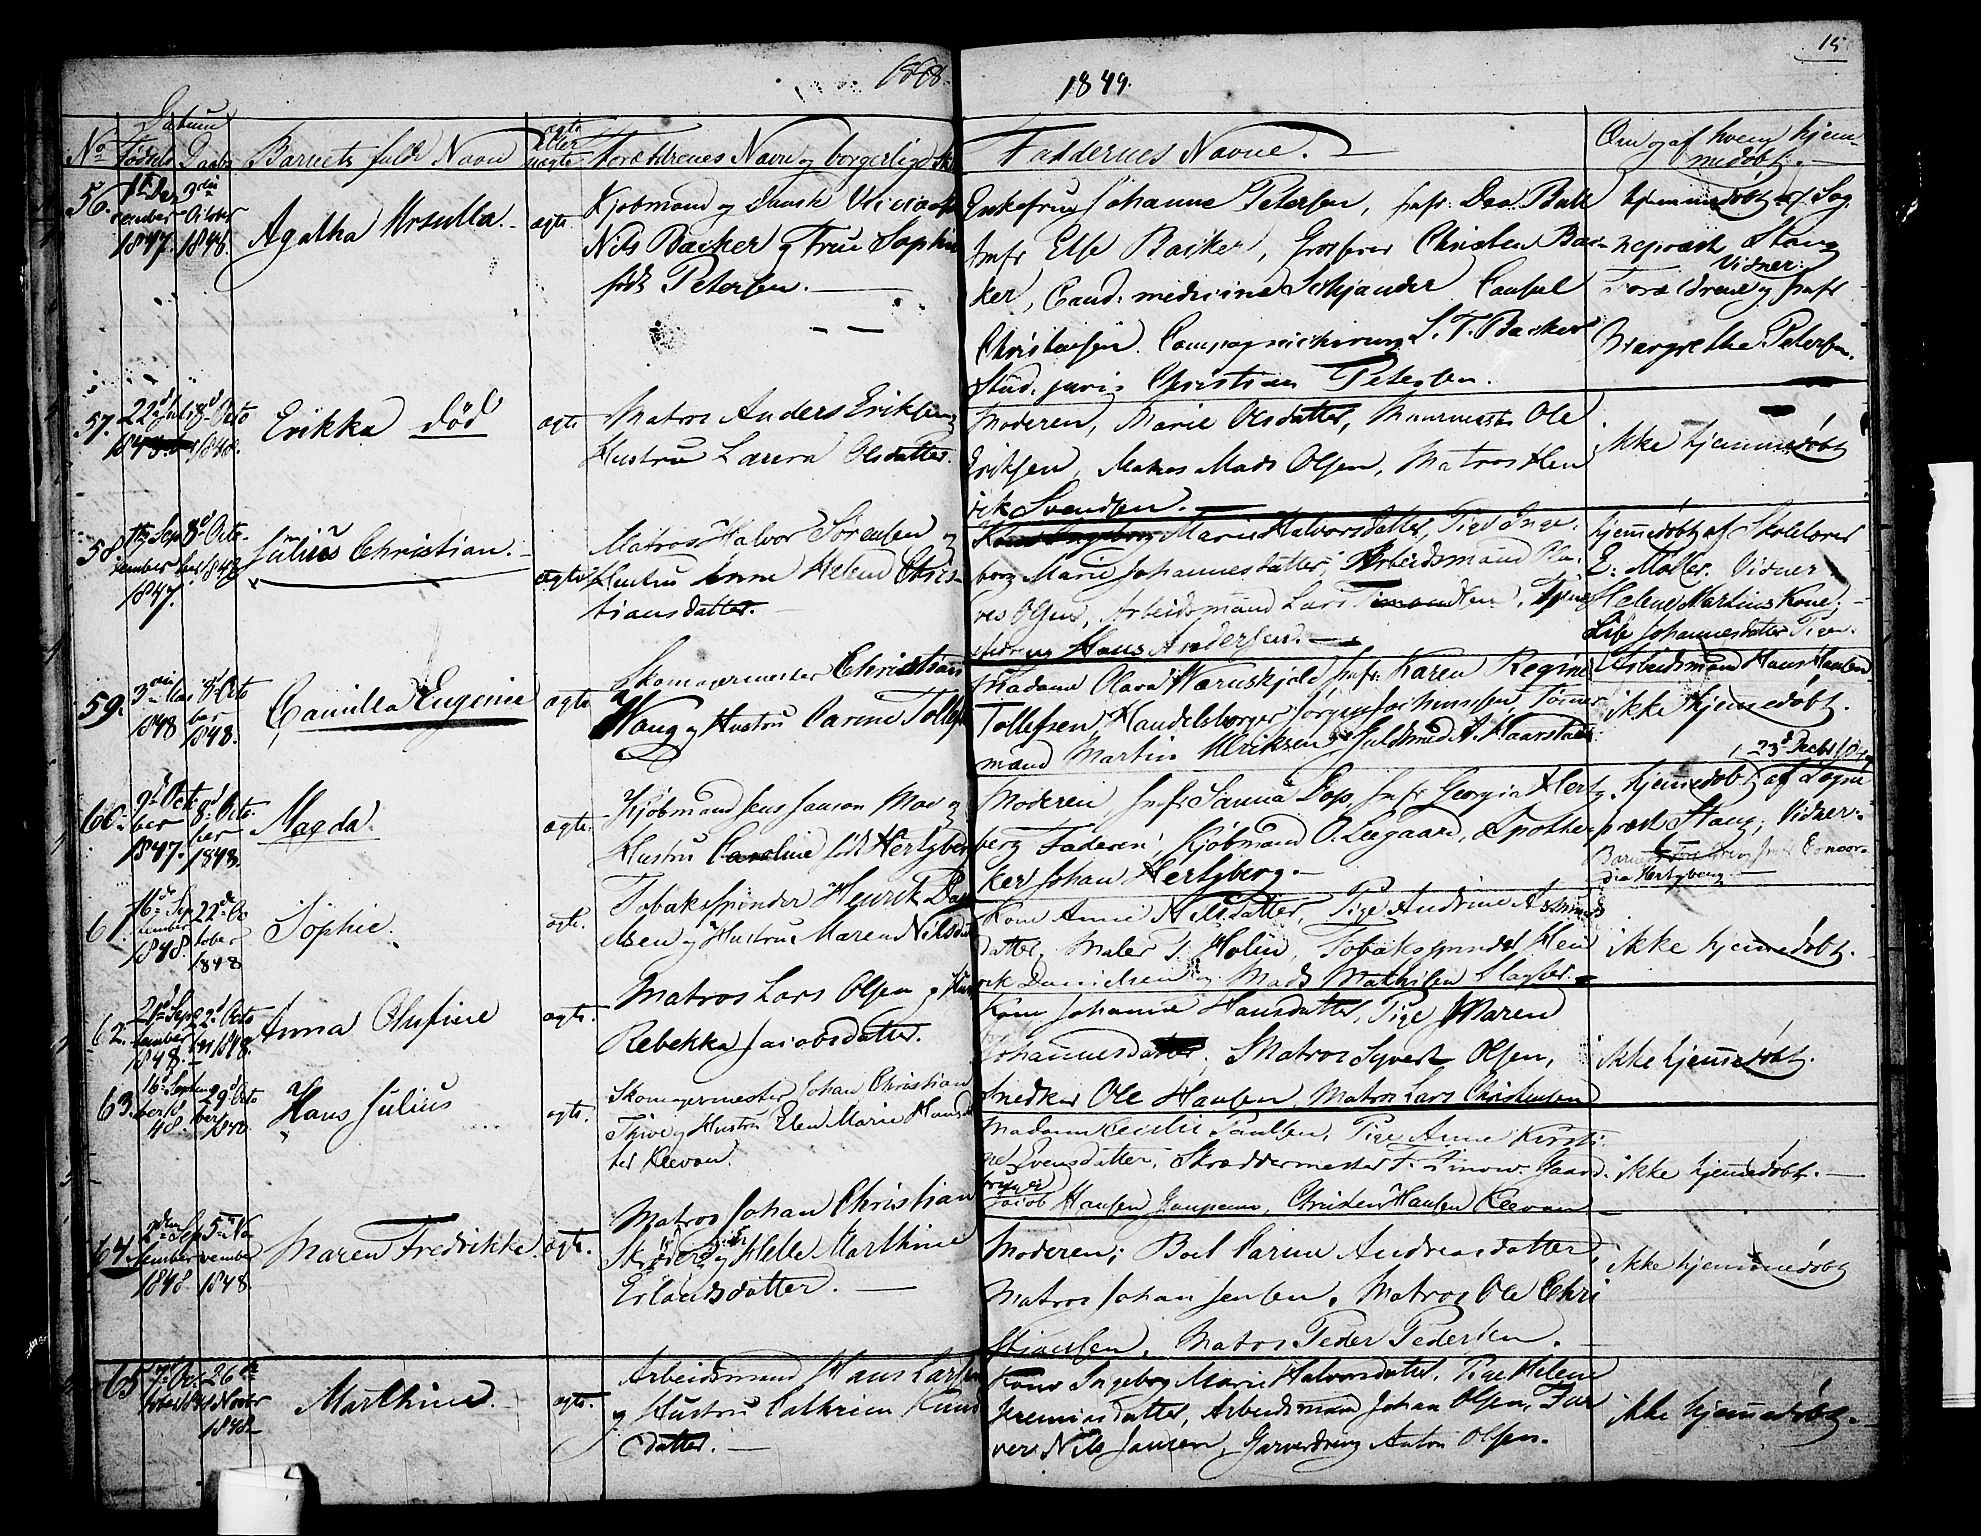 1848.
1849.
15
Datum
No Fødsels Daabs Barnets fulde Navn ægte eller uægte Forældrenes Navn og borgerlige
Faddernes Navne.
Om og af hvem hjem-
medøbt.
56. 1ste December 1847. 3die October 1848. Agatha Ursulla. ægte
Kjøbmand og Dansk
Nils Backer og Frue Sophie
født Petersen.
Enkefrue Johanne Petersen,
Jmfr Else Backer, Christen Bac-
ker, Cand. medicine Schjander Consul
Christensen. S. T. Backer
Stud. juris Christian Petersen.
hjemmedøbt af Sog
nepræst Stang
Vidner:
Forældrene og Jmfr
Margrethe Petersen.
57. 22d Juli 1848 8d Octo 1848. Erikka død ægte
Matros Anders Eriksen
Hustru Laura Olsdatter.
Moderen, Marie Olsdatter, Muurmester Ole
Eriksen, Matros Mads Olsen, Matros Hen
rik Svendsen.
ikke hjemmedøbt
58 September 1847. 8d October Julius Christian. ægte
Matros Halvor Sørensen og
Hustru Anne Helene Chris-
tiansdatter.
Marie Halvorsdatter, Pige Inge-
borg Marie Johannesdatter, Arbeidsmand
Olsen, Arbeidsmand Lars
Hans Andersen.
hjemmedøbt af Skolelærer
E. Møller. Vidner
Helene Martins Kone,
Johannesdatter Pige
Arbeidsmand Hans Hansen
59. 3die Mai 1848 8d October 1848. Camilla Eugenie ægte
Skomagermester Christian
Wang og Hustru Carine Tollefs
Madame Olava Wærnskjold Jmfr. Karen Regine
Tollefsen Handelsborger Jørgen Jochumsen, Tømer
mand Martin Ulriksen Guldsmed A. Haarstad
ikke hjemmedøbt.
60. 9d October 1847. 8d October 1848. Magda. ægte.
Kjøbmand Jens Janson Moe og
Hustru Caroline født Hertzberg
Moderen Jmfr Sanna Dop, Jmfr Georgia Hertz
berg Faderen, Kjøbmand O. Leegaard, Apothe
ker Johan Hertzberg.
23d Decbr
hjemmedøbt af Sogne
præst Stang, Vidner.
Barnets Forældre Jmfr Concor-
dia Hertzberg.
61. 16d September 1848. 22de October 1848 Sophie. ægte.
Tobaksspinder Henrik Dani
elsen og Hustrue Maren Nilsdat
Kone Anne Nilsdatter, Pige Andrine Asmunds
datter, Maler T. Holm, Tobaksspinder Hen
rik Danielsen og Mads Mathisen Slagter.
ikke hjemmedøbt.
62. 21d September 1848. 22d October 1848. Anna Olufine ægte.
Matros Lars Olsen og Hust
Rebekka Jacobsdatter.
Kone Johanne Hansdatter, Pige Maren
Johannesdatter, Matros Syvert Olsen,
Snedker Ole Hansen, Matros Lars Christensen
ikke hjemmedøbt.
63. 16d September 48. 29d October 1848 Hans Julius ægte.
Skomagermester Johan Christian
Thive og Hustru Elen Marie Hansdat
ter Kleevan.
Madame Cecilie Paulsen, Pige Anne Kirsti
ne Evensdatter, Skræddermester F. Limow. Gaard
bruger
Jacob Hansen Christen Hansen Kleevan
ikke hjemmedøbt.
64. September 1848. 5te November 1848. Maren Fredrikke. ægte.
Matros Johan Christian
Helle Marthine
Erlandsdatter.
Moderen, Boel Carine Andreasdatter,
Matros Johan Jensen, Matros Ole Chri
stiansen, Matros Peder Pedersen.
ikke hjemmedøbt
65 7d October 1848 26de Novbr 1848 Marthine. ægte.
Arbeidsmand Hans Larsen
og Hustru Cathrine Knud
datter.
Kone Ingeborg Marie Halvorsdatter, Pige Helene
Jeremiasdatter, Arbeidsmand Johan Olsen, Far
ver Nils Jansen, Garverdreng Anton Olsen.
ikke hjemmedøbt.